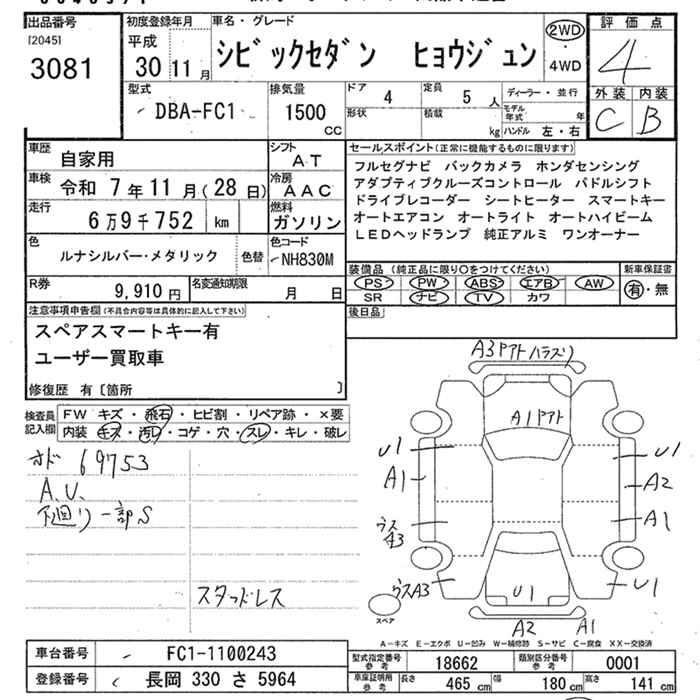 出品番号
[2045]
3081
初度登録年月
平成
30 11月
車名・グレード
シビックセダン ヒョウジュン
2WD
・
4WD
評価点
4
外装 内装
C B
型式
DBA-FC1
排気量
1500
CC
ドア
4
定員
5 人
形状
積載
kg
ディーラー・並行
モデル年式 年
ハンドル 左・右
車歴
自家用
シフト
AT
車検
令和 7年11月(28日)
冷房
AAC
走行
6万9千752 km
燃料
ガソリン
色
ルナシルバー・メタリック
色替
色コード
NH830M
R券
9,910円
名変通知期限
月 日
セールスポイント(正常に機能するものに限ります)
フルセグナビ バックカメラ ホンダセンシング
アダプティブクルーズコントロール パドルシフト
ドライブレコーダー シートヒーター スマートキー
オートエアコン オートライト オートハイビーム
LEDヘッドランプ 純正アルミ ワンオーナー
装備品(純正品に限り○をつけてください)
PS PW ABS エアB AW
SR ナビ TV カワ
新車保証書
有・無
後日品
注意事項申告欄(不具合内容等は具体的に記入して下さい)
スペアスマートキー有
ユーザー買取車
修復歴 有〔箇所 〕
検査員記入欄
FW キズ・飛石・ヒビ割・リペア跡・×要
内装・キズ・汚れ・コゲ・穴・スレ・キレ・破レ
オド 69753
A.U.
下廻り一部S
スタッドレス
A3 Pアト ハラズリ
A1 Pアト
U1
U1
A1
A2
A1
ウスA3
ウスA3
U1
U1
A2
A1
スペア
A-キズ E-エクボ U-凹み W-補修跡 S-サビ C-腐食 XX-交換済
車台番号
FC1-1100243
登録番号
長岡 330 さ 5964
型式指定番号
参考
18662
類別区分番号
参考
0001
車庫証明用
参考
長さ
465 cm
幅
180 cm
高さ
141 cm